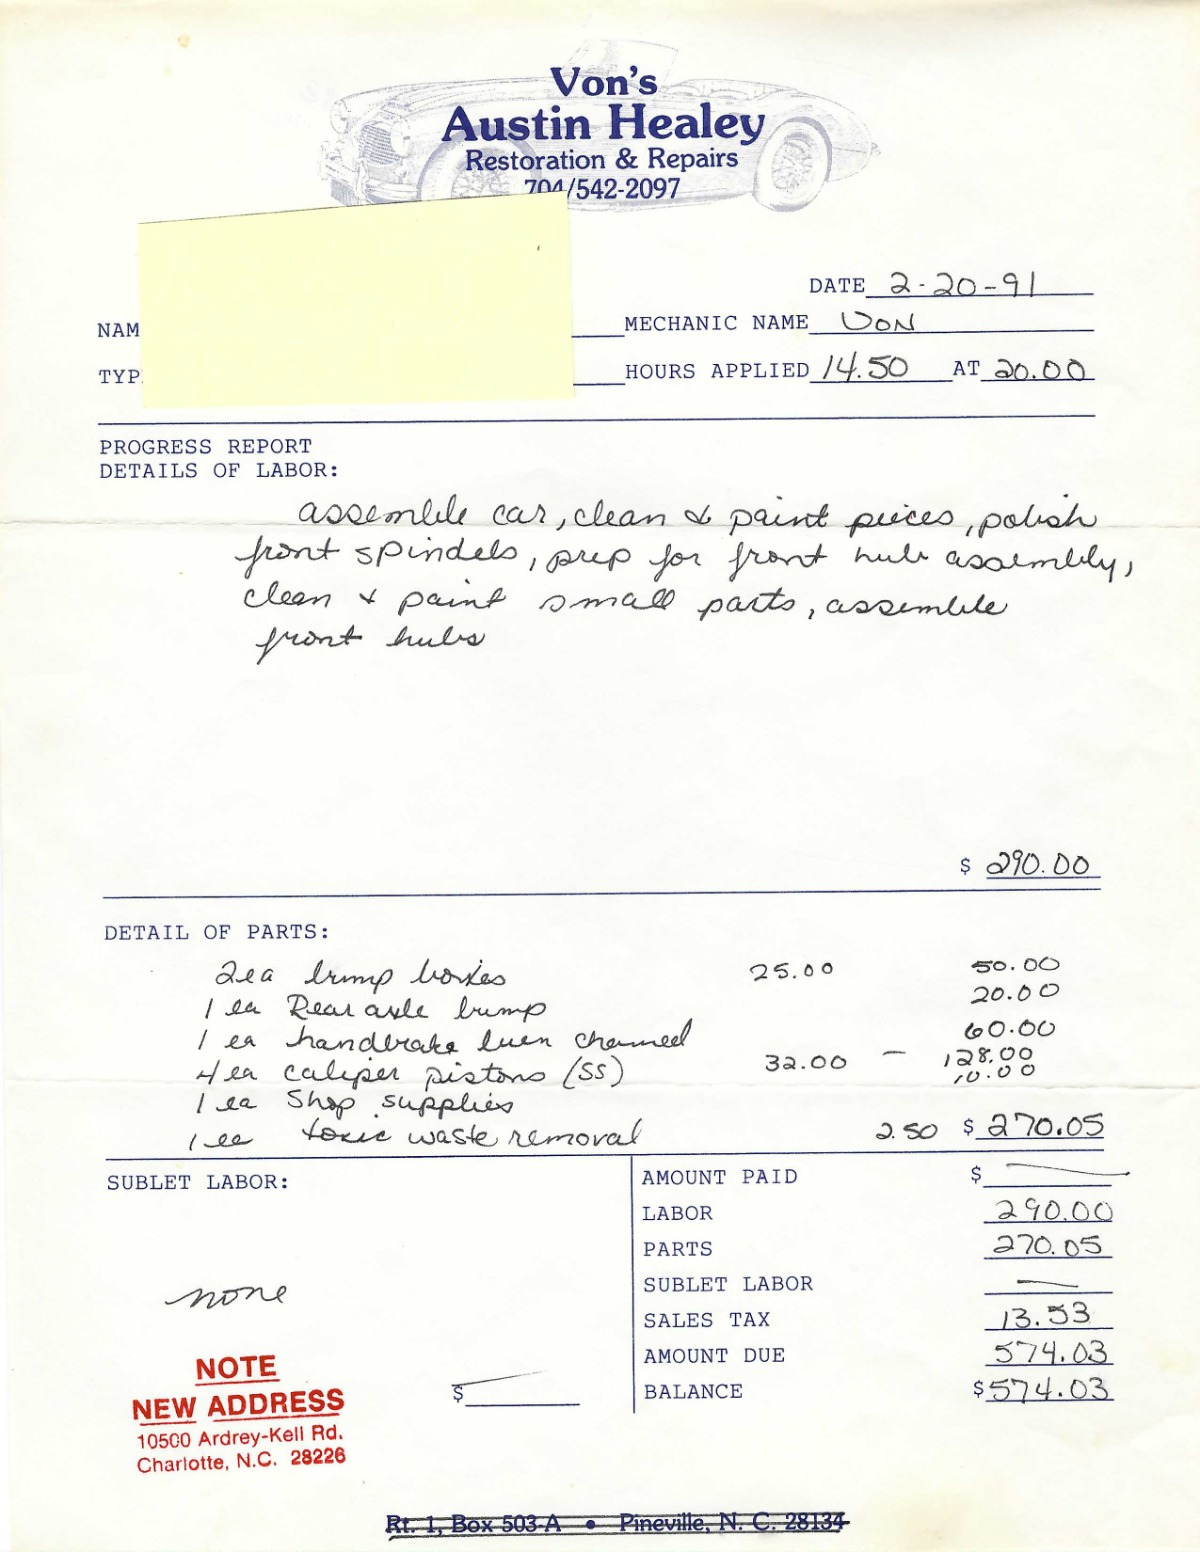 Von's
Austin Healey
Restoration & Repairs
704/542-2097
DATE 2-20-91
NAM MECHANIC NAME Von
TYP HOURS APPLIED 14.50 AT 20.00
PROGRESS REPORT
DETAILS OF LABOR:
assemble car, clean & paint pieces, polish
front spindels, prep for front hub assembly,
clean & paint small parts, assemble
front hubs
$ 290.00
DETAIL OF PARTS:
2 ea bump boxes 25.00 50.00
1 ea Rear axle bump 20.00
1 ea handbrake chromed 60.00
4 ea caliper pistons (SS) 32.00 — 128.00
1 ea Shop supplies 10.00
1 ea toxic waste removal 2.50 $ 270.05
SUBLET LABOR:
none
$
AMOUNT PAID $
LABOR 290.00
PARTS 270.05
SUBLET LABOR —
SALES TAX 13.53
AMOUNT DUE 574.03
BALANCE $574.03
NOTE
NEW ADDRESS
10500 Ardrey-Kell Rd.
Charlotte, N.C. 28226
Rt. 1, Box 503-A • Pineville, N. C. 28134